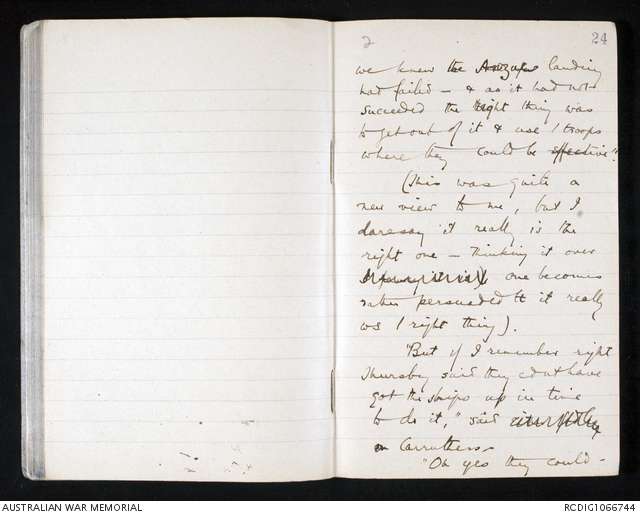 2
24
we knew the Anzac landing
had failed – & as it had not
succeeded the right thing was
to get out of it & use / troops
where they could be effective".
(This was quite a
new view to me, but I
daresay it really is the
right one – thinking it over
one becomes
rather persuaded tt it really
ws / right thing).
"But if I remember right
Thursby said they cdnt have
got the ships up in time
to do it," said
Carruthers –
"Oh yes they could –
AUSTRALIAN WAR MEMORIAL
RCDIG1066744